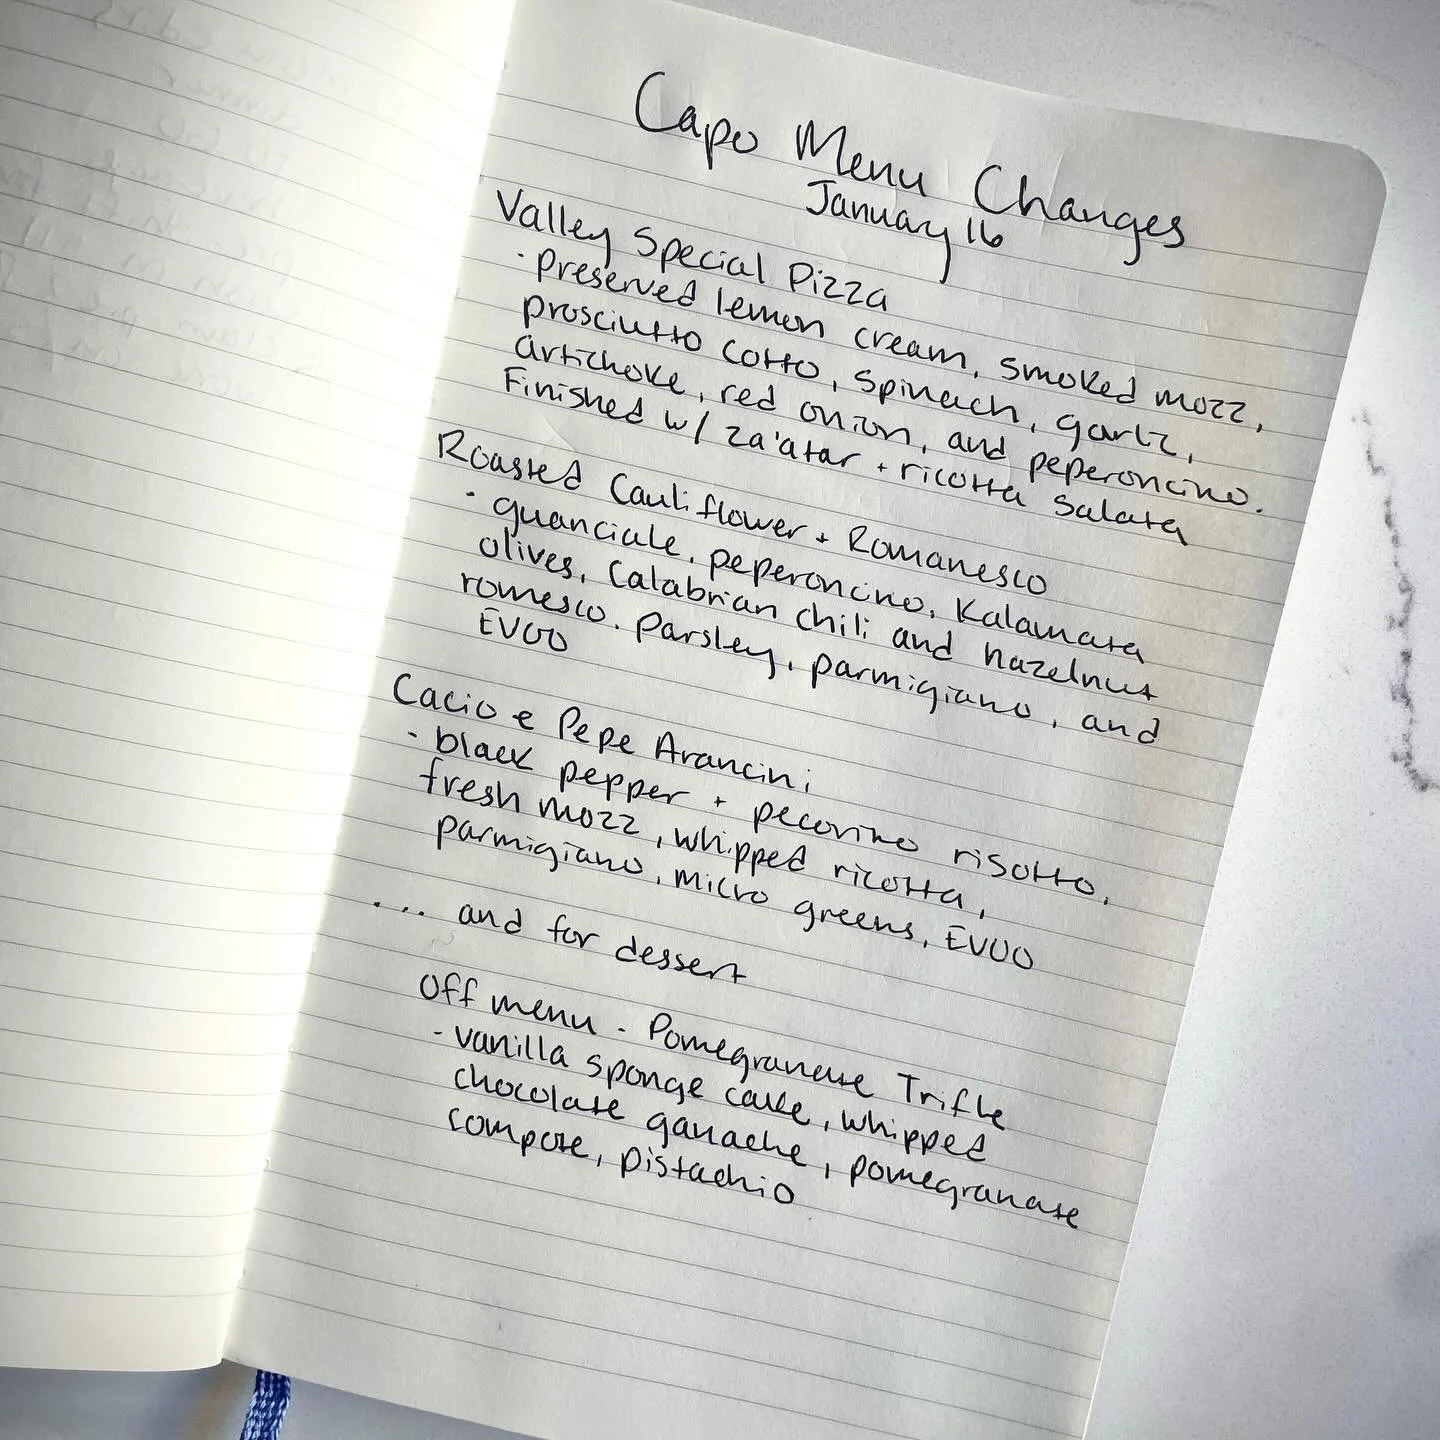 Capo Menu Changes
January 16
Valley Special Pizza
· Preserved lemon cream, smoked mozz,
prosciutto cotto, spinach, garlic,
artichoke, red onion, and peperoncino.
Finished w/ za'atar + ricotta salata
Roasted Cauliflower + Romanesco
· guanciale, peperoncino, Kalamata
olives, Calabrian chili and hazelnut
romesco. Parsley, parmigiano, and
EVOO
Cacio e Pepe Arancini
· black pepper + pecorino risotto,
fresh mozz, whipped ricotta,
parmigiano, micro greens, EVOO
... and for dessert
Off menu - Pomegranate Trifle
- vanilla sponge cake, whipped
chocolate ganache, pomegranate
compote, pistachio